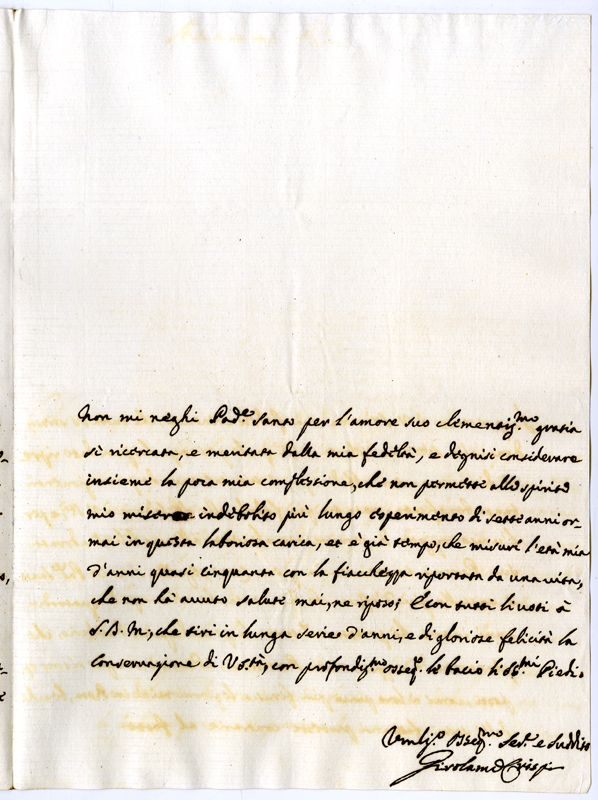 Non mi neghi Pad.e Santo per l'amore suo clementiss.mo gratia
sì ricercata, e meritata dalla mia fedeltà, e degnisi considerare
insieme la poca mia complessione, che non permette allo spirito
mio indebolito più lungo esperimento di sette anni or-
mai in questa laboriosa carica, et è già tempo, che misuri l'età mia
d'anni quasi cinquanta con la fiacchezza riportata da una vita,
che non hà avuto salute mai, ne riposo; E con tutti li voti à
S. D. M., che tiri in lunga serie d'anni, e di gloriose felicità la
conservazione di V.ra S.tà, con profondiss.mo osseq. le bacio li SS.mi Piedi.
Umiliss.o Osseq.mo Ser.e e Suddito
Girolamo Crispi